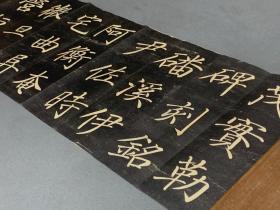 茂實勒
碑刻銘
磻溪伊
尹佐時
阿衡奄
宅曲阜
微旦
營